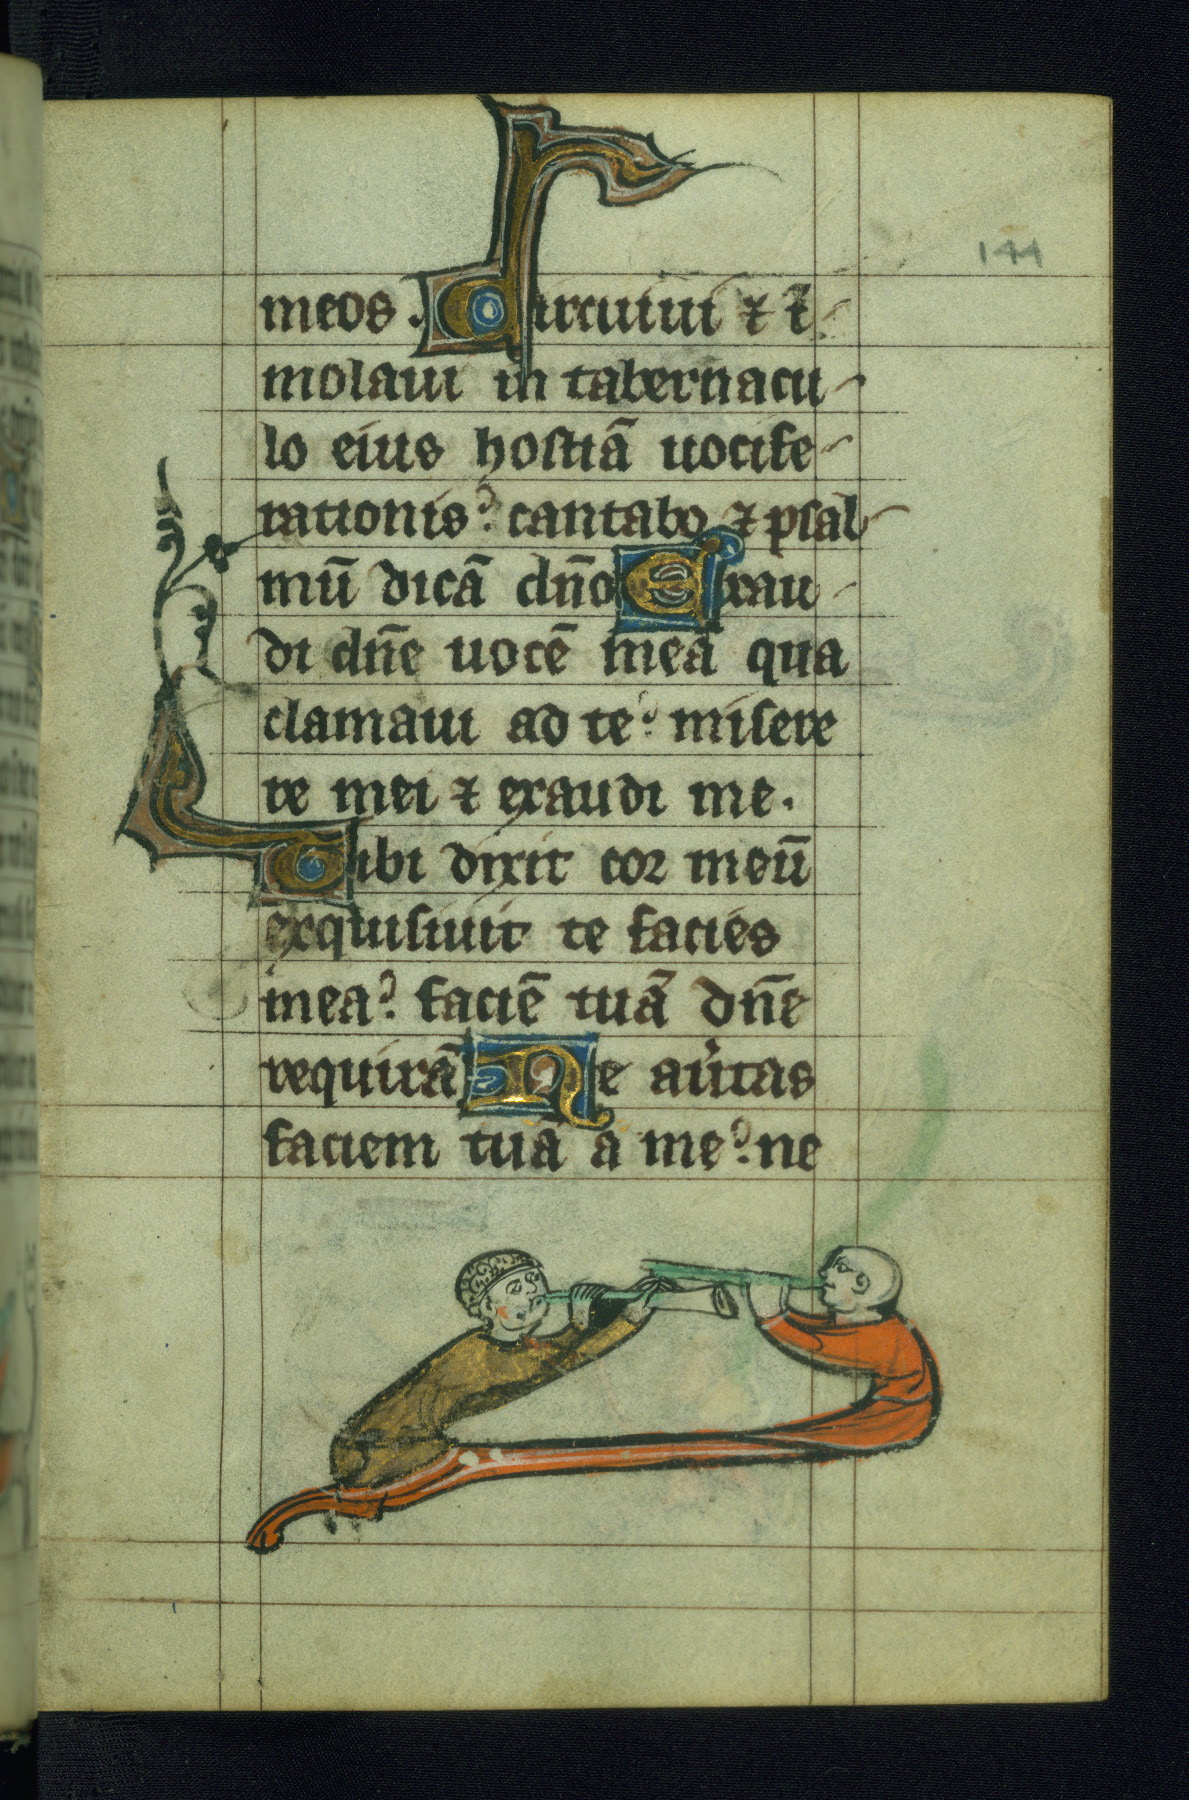 144
meos. Circuiui ⁊ ī
molaui in tabernacu
lo eius hostiā uocife
rationis? cantabo ⁊ psal
mū dicā dn̄o Exau
di dn̄e uocē meā qua
clamaui ad te? misere
re mei ⁊ exaudi me.
Tibi dixit cor meū
exquisiuit te facies
mea? faciē tuā dn̄e
requirā Ne au͛tas
faciem tuā a me? ne